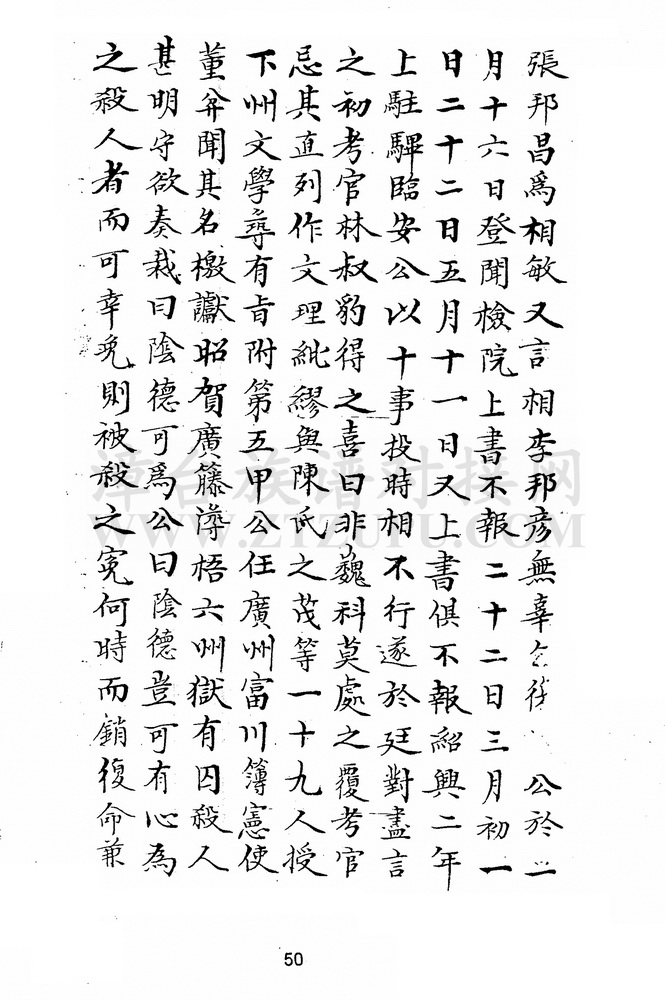 張邦昌爲相敏又言相李邦彦無辜 公於二
月十六日登聞檢院上書不報二十二日三月初一
日二十二日五月十一日又上書俱不報紹興二年
上駐驆臨安公以十事投時相不行遂於廷對盡言
之初考官林叔豹得之喜曰非魏科莫處之覆考官
忌其直列作文理紕繆與陳氏之茂等一十九人授
下州文學尋有旨附第五甲公任廣州富川簿憲使
董弅聞其名檄讞昭賀廣籐潯梧六州獄有囚殺人
甚明守欲奏裁曰陰德可爲公曰陰德豈可有心為
之殺人者而可幸免則被殺之冤何時而銷復命兼
漳台族谱对接网
WWW.ZTZUPU.COM
50